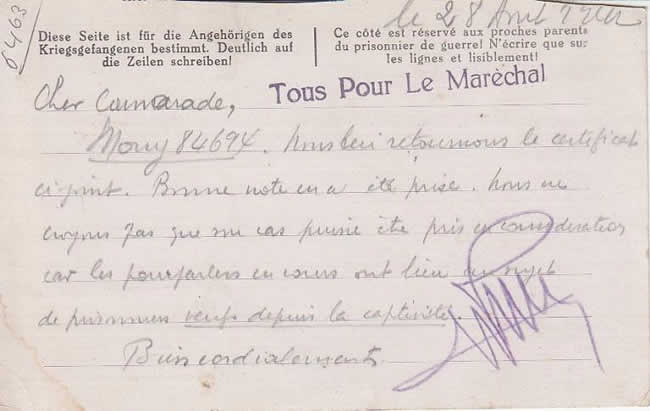 6463
le 28 Avril
Diese Seite ist für die Angehörigen des
Kriegsgefangenen bestimmt. Deutlich auf
die Zeilen schreiben!
Ce côté est réservé aux proches parents
du prisonnier de guerre! N'écrire que sur
les lignes et lisiblement!
Tous Pour Le Maréchal
Cher Camarade,
Mouy 84694. Nous lui retournons le certificat
ci joint. Bonne note en a été prise. Nous ne
croyons pas que son cas puisse être pris en considération
car les pourparlers en cours ont lieu au sujet
de prisonniers veufs depuis la captivité.
Bien cordialement